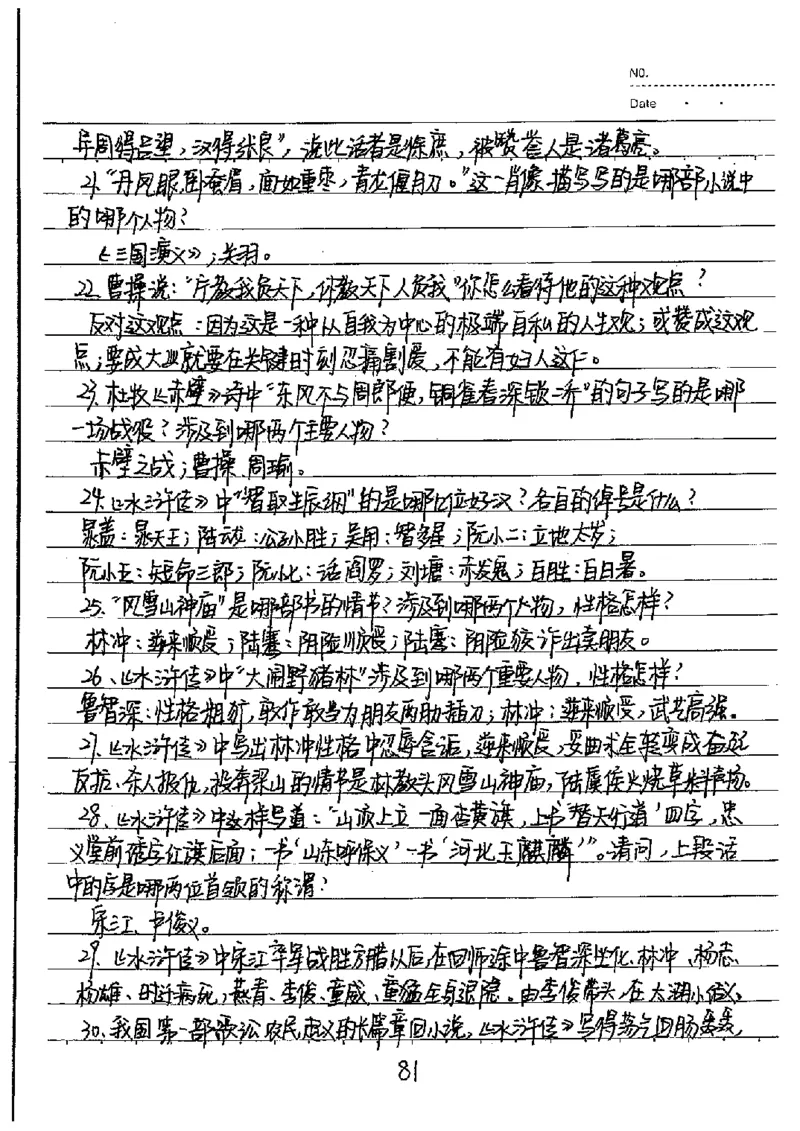 NO.
Date
异周得吕望，汉得张良”，说此话者是徐庶，被赞誉人是诸葛亮。
21.“丹凤眼，卧蚕眉，面如重枣，青龙偃月刀。”这一肖像描写写的是哪部小说中
的哪个人物？
《三国演义》；关羽。
22.曹操说：“宁教我负天下，休教天下人负我”你怎么看待他的这种观点？
反对这观点：因为这是一种以自我为中心的极端自私的人生观；或赞成这观
点；要成大业就要在关键时刻忍痛割爱，不能有妇人这仁。
23.杜牧《赤壁》诗中“东风不与周郎便，铜雀春深锁二乔”的句子写的是哪
一场战役？涉及到哪两个主要人物？
赤壁之战；曹操、周瑜。
24.《水浒传》中“智取生辰纲”的是哪几位好汉？各自的绰号是什么？
晁盖：晁天王；陆云龙：公孙胜；吴用：智多星；阮小二：立地太岁；
阮小五：短命三郎；阮小七：活阎罗；刘塘：赤发鬼；白胜：白日暑。
25.“风雪山神庙”是哪部书的情节？涉及到哪两个人物，性格怎样？
林冲：逆来顺受；陆骞：阴险顺受；陆骞：阴险狡诈出卖朋友。
26、《水浒传》中“大闹野猪林”涉及到哪两个重要人物，性格怎样？
鲁智深：性格粗犷，敢作敢当为朋友两肋插刀；林冲：逆来顺受，武艺高强。
27.《水浒传》中写出林冲性格中忍辱含诟，逆来顺受，妥曲求全转变成奋起
反抗、杀人报仇，投奔梁山的情节是林教头风雪山神庙，陆虞侯火烧草料场。
28、《水浒传》中这样写道：“山顶上立一面杏黄旗，上书‘替天行道’四字，忠
义堂前绣字红旗后面；一书‘山东呼保义’一书‘河北玉麒麟’”。请问，上段话
中的后是哪两位首领的称谓？
宋江、卢俊义。
29.《水浒传》中宋江率军战胜方腊以后，在回师途中鲁智深坐化、林冲、杨志、
杨雄、时迁病死，燕青、李俊、童威、童猛全身退隐。由李俊带头，在太湖小结义。
30.我国第一部歌讼农民起义的长篇章回小说，《水浒传》写得荡气回肠轰轰
81